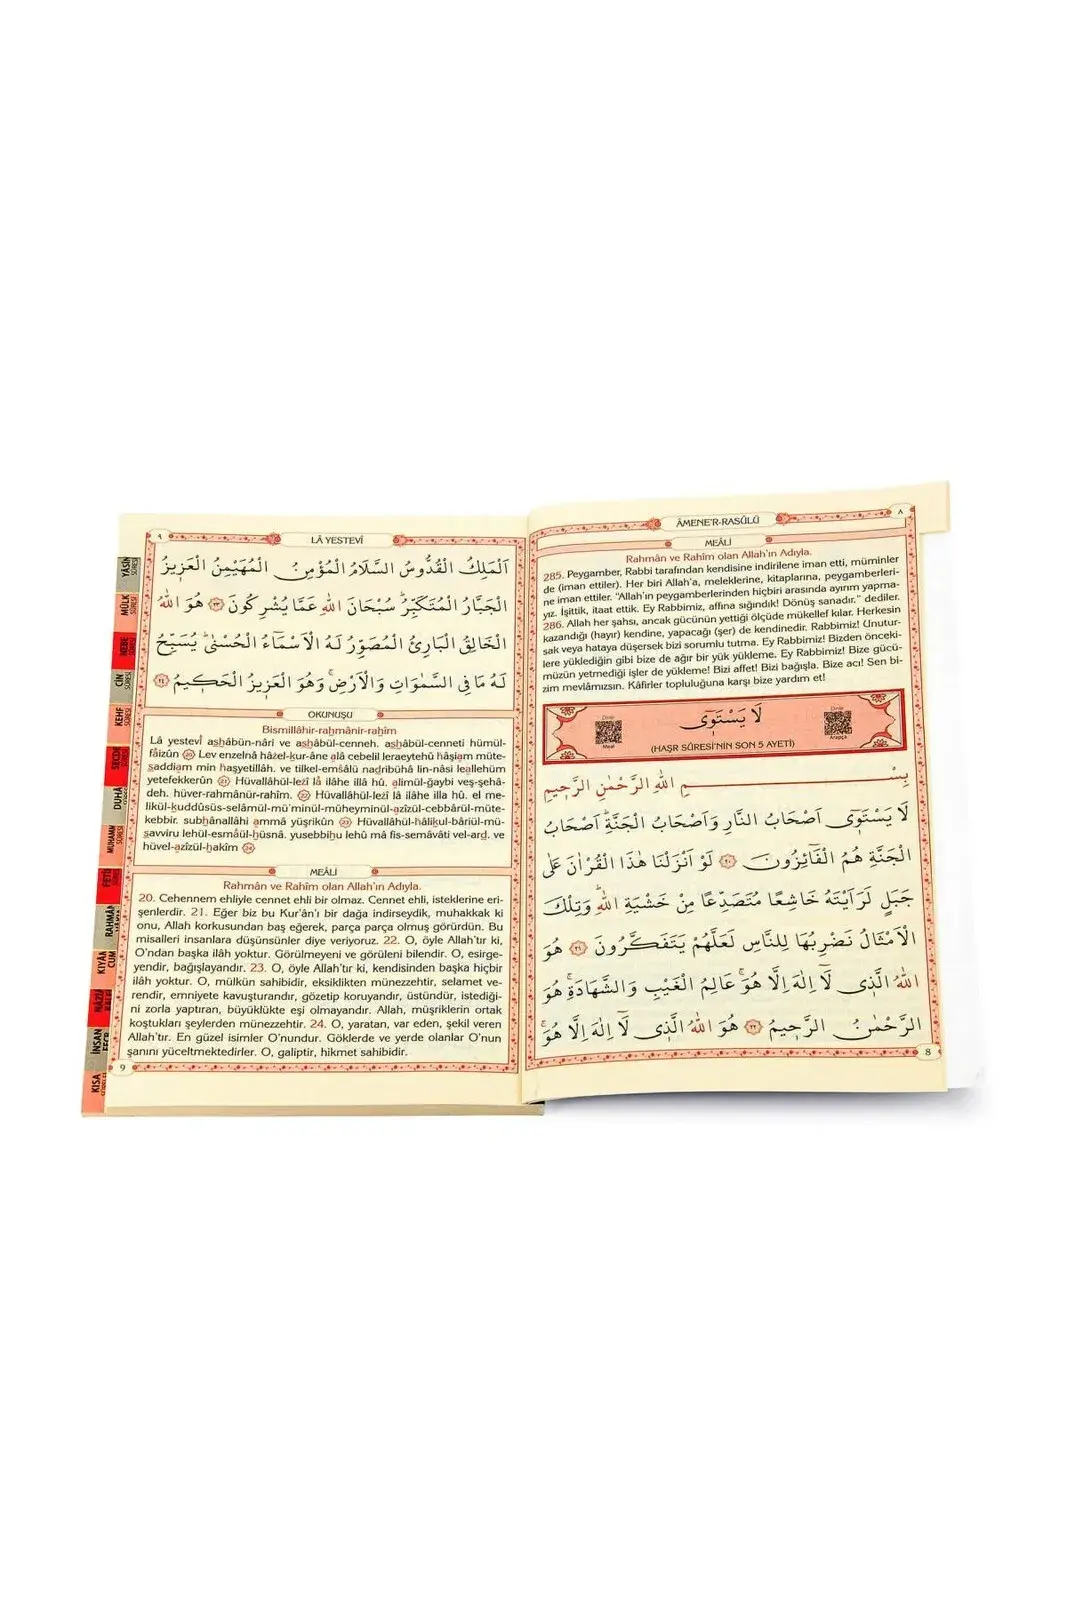 ٨
ÂMENE'R-RASÛLÜ
MEÂLİ
Rahmân ve Rahîm olan Allah'ın Adıyla.
285. Peygamber, Rabbi tarafından kendisine indirilene iman etti, müminler
de (iman ettiler). Her biri Allah'a, meleklerine, kitaplarına, peygamberleri-
ne iman ettiler. "Allah'ın peygamberlerinden hiçbiri arasında ayırım yapma-
yız. İşittik, itaat ettik. Ey Rabbimiz, affına sığındık! Dönüş sanadır." dediler.
286. Allah her şahsı, ancak gücünün yettiği ölçüde mükellef kılar. Herkesin
kazandığı (hayır) kendine, yapacağı (şer) de kendinedir. Rabbimiz! Unutur-
sak veya hataya düşersek bizi sorumlu tutma. Ey Rabbimiz! Bizden önceki-
lere yüklediğin gibi bize de ağır bir yük yükleme. Ey Rabbimiz! Bize gücü-
müzün yetmediği işler de yükleme! Bizi affet! Bizi bağışla. Bize acı! Sen bi-
zim mevlâmızsın. Kâfirler topluluğuna karşı bize yardım et!
Dinle
Meal
لَا يَسْتَوٖى
Dinle
Arapça
(HAŞR SÛRESİ'NİN SON 5 AYETİ)
بِسْـــــــمِ اللهِ الرَّحْمٰنِ الرَّحٖيمِ
لَا يَسْتَوٖى اَصْحَابُ النَّارِ وَاَصْحَابُ الْجَنَّةِؕ اَصْحَابُ
الْجَنَّةِ هُمُ الْفَٓائِزُونَ ﴿٢٠﴾ لَوْ اَنْزَلْنَا هٰذَا الْقُرْاٰنَ عَلٰى
جَبَلٍ لَرَاَيْتَهُ خَاشِعًا مُتَصَدِّعًا مِنْ خَشْيَةِ اللهِؕ وَتِلْكَ
الْاَمْثَالُ نَضْرِبُهَا لِلنَّاسِ لَعَلَّهُمْ يَتَفَكَّرُونَ ﴿٢١﴾ هُوَ
اللهُ الَّذٖى لَٓا اِلٰهَ اِلَّا هُوَۚ عَالِمُ الْغَيْبِ وَالشَّهَادَةِۚ هُوَ
الرَّحْمٰنُ الرَّحٖيمُ ﴿٢٢﴾ هُوَ اللهُ الَّذٖى لَٓا اِلٰهَ اِلَّا هُوَۚ
8
٩
LÂ YESTEVÎ
اَلْمَلِكُ الْقُدُّوسُ السَّلَامُ الْمُؤْمِنُ الْمُهَيْمِنُ الْعَزٖيزُ
الْجَبَّارُ الْمُتَكَبِّرُؕ سُبْحَانَ اللهِ عَمَّا يُشْرِكُونَ ﴿٢٣﴾ هُوَ اللهُ
الْخَالِقُ الْبَارِئُ الْمُصَوِّرُ لَهُ الْاَسْمَٓاءُ الْحُسْنٰىؕ يُسَبِّحُ
لَهُ مَا فِى السَّمٰوَاتِ وَالْاَرْضِۚ وَهُوَ الْعَزٖيزُ الْحَكٖيمُ ﴿٢٤﴾
OKUNUŞU
Bismillâhir-rahmânir-rahîm
Lâ yestevî ashâbün-nâri ve ashâbül-cenneh. ashâbül-cenneti hümül-
fâizûn 20 Lev enzelnâ hâzel-kur-âne alâ cebelil leraeytehû hâşiam müte-
saddiam min haşyetillâh. ve tilkel-emsâlü nadribühâ lin-nâsi leallehüm
yetefekkerûn 21 Hüvallâhül-lezî lâ ilâhe illâ hû. alimül-ğaybi veş-şehâ-
deh. hüver-rahmânür-rahîm. 22 Hüvallâhül-lezî lâ ilâhe illa hû. el me-
likül-kuddûsüs-selâmül-mü'minül-müheyminül-azîzül-cebbârül-müte-
kebbir. subhânallâhi ammâ yüşrikûn 23 Hüvallâhül-hâlikul-bâriül-mü-
savviru lehül-esmâül-hüsnâ. yusebbihu lehû mâ fis-semâvâti vel-ard. ve
hüvel-azîzül-hakîm 24
MEÂLİ
Rahmân ve Rahîm olan Allah'ın Adıyla.
20. Cehennem ehliyle cennet ehli bir olmaz. Cennet ehli, isteklerine eri-
şenlerdir. 21. Eğer biz bu Kur'ân'ı bir dağa indirseydik, muhakkak ki
onu, Allah korkusundan baş eğerek, parça parça olmuş görürdün. Bu
misalleri insanlara düşünsünler diye veriyoruz. 22. O, öyle Allah'tır ki,
O'ndan başka ilâh yoktur. Görülmeyeni ve görüleni bilendir. O, esirge-
yendir, bağışlayandır. 23. O, öyle Allah'tır ki, kendisinden başka hiçbir
ilâh yoktur. O, mülkün sahibidir, eksiklikten münezzehtir, selamet ve-
rendir, emniyete kavuşturandır, gözetip koruyandır, üstündür, istediği-
ni zorla yaptıran, büyüklükte eşi olmayandır. Allah, müşriklerin ortak
koştukları şeylerden münezzehtir. 24. O, yaratan, var eden, şekil veren
Allah'tır. En güzel isimler O'nundur. Göklerde ve yerde olanlar O'nun
şanını yüceltmektedirler. O, galiptir, hikmet sahibidir.
9
YÂSÎN SÛRESİ
MÜLK SÛRESİ
NEBE SÛRESİ
CİN SÛRESİ
KEHF SÛRESİ
SECDE
DUHÂ
MUHAMM
FETİH
RAHMÂN
KIYÂM
CUM
İNSAN
FECR
KISA